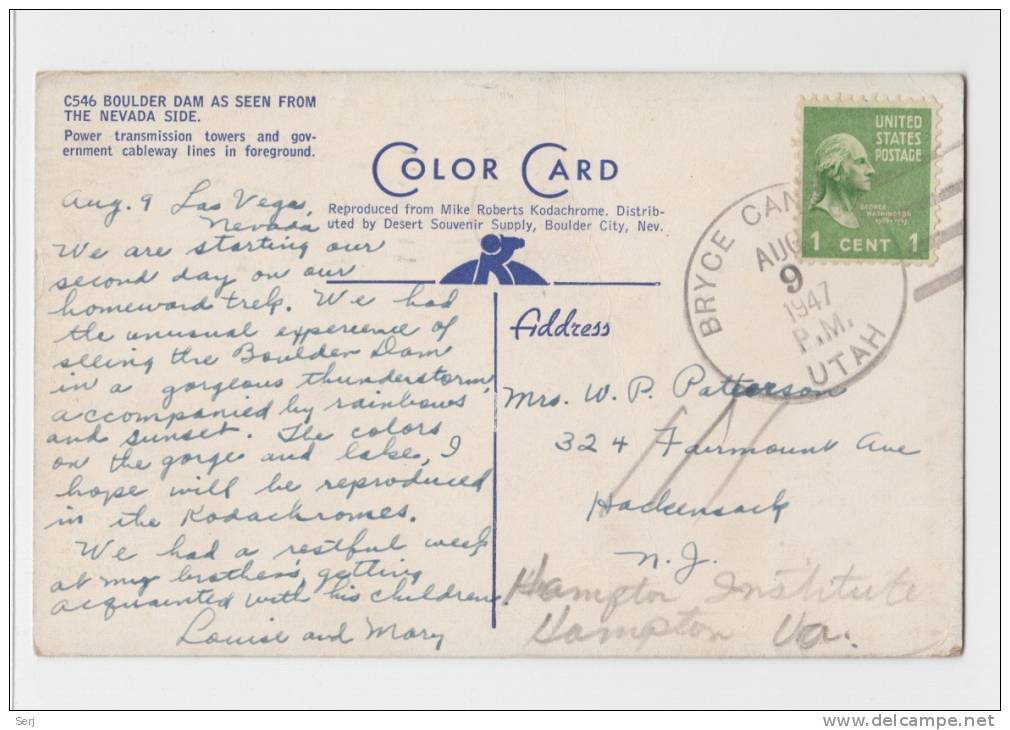 C546 BOULDER DAM AS SEEN FROM
THE NEVADA SIDE.
Power transmission towers and gov-
ernment cableway lines in foreground.
COLOR CARD
Reproduced from Mike Roberts Kodachrome. Distrib-
uted by Desert Souvenir Supply, Boulder City, Nev.
Aug. 9 Las Vegas,
Nevada
We are starting our
second day on our
homeward trek. We had
the unusual experience of
seeing the Boulder Dam
in a gorgeous thunderstorm,
accompanied by rainbows
and sunset. The colors
on the gorge and lake, I
hope will be reproduced
in the Kodachromes.
We had a restful week
at my brother's, getting
acquainted with his children.
Louise and Mary
UNITED
STATES
POSTAGE
GEORGE
WASHINGTON
1 CENT 1
BRYCE CAN
AUG
9
1947
P.M.
UTAH
Address
Mrs. W. P. Patterson
324 Fairmount Ave
Hackensack
N. J.
Hampton Institute
Hampton Va.
Serj
www.delcampe.net